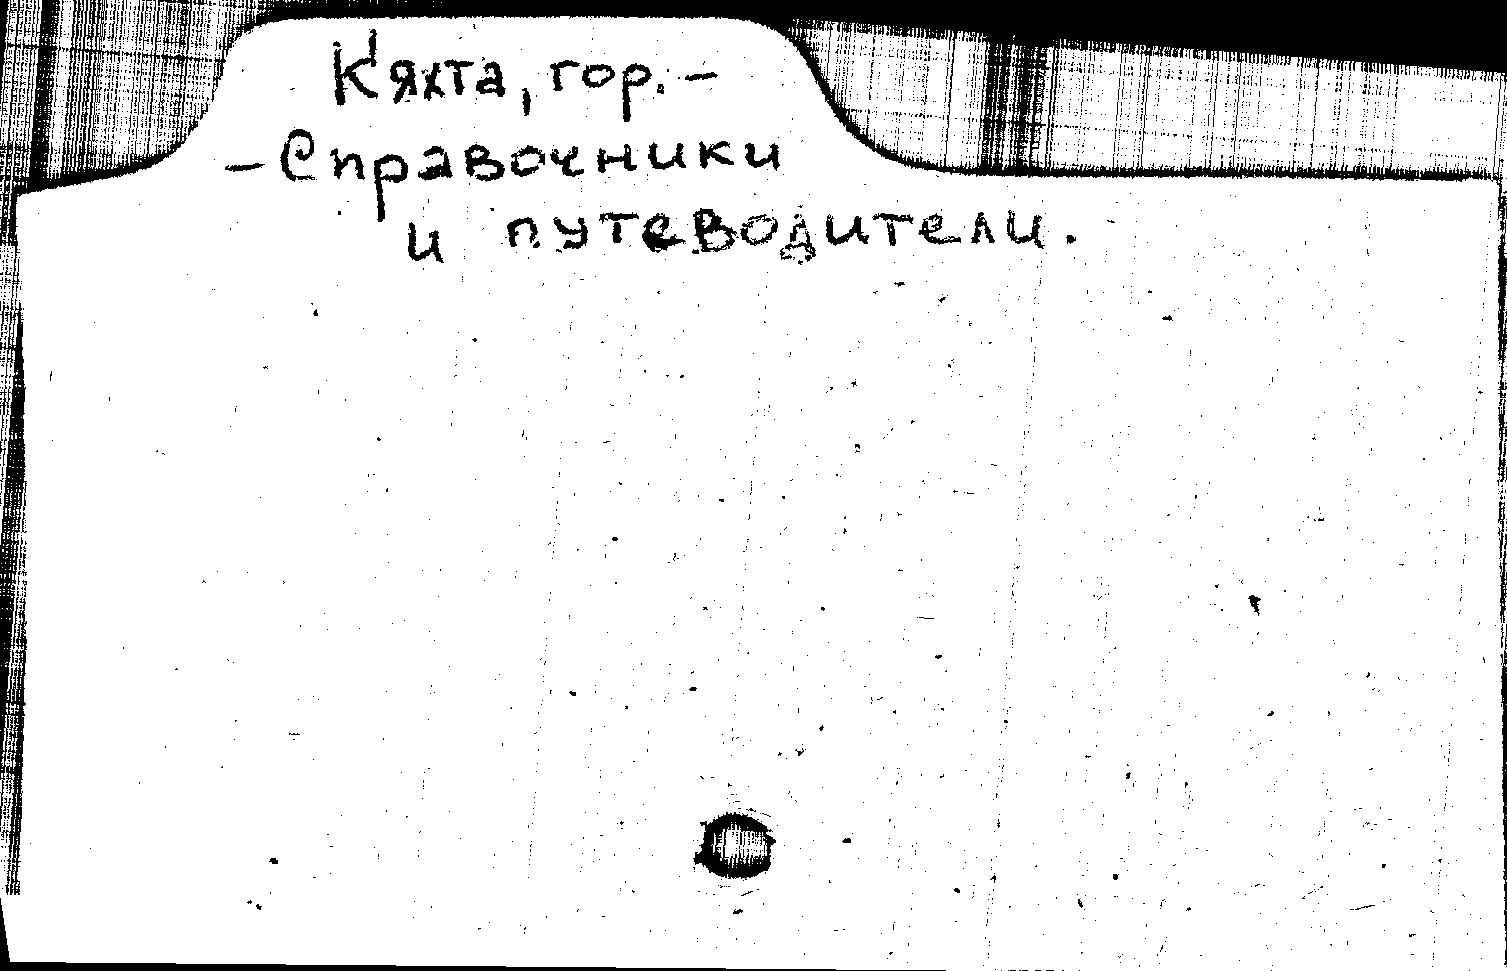 Кяхта, гор. –
– Справочники
и путеводители.